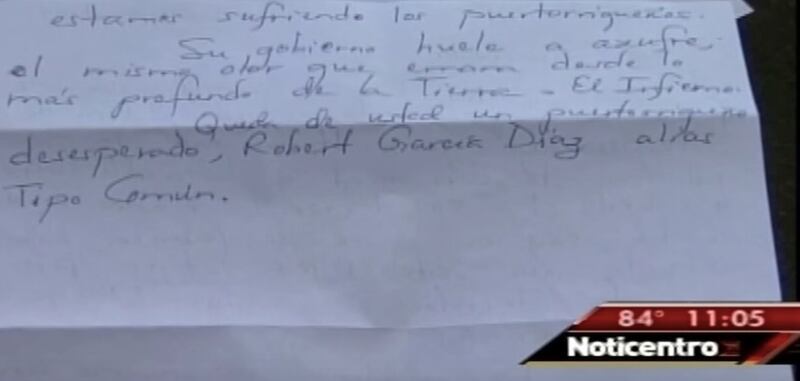 estamos sufriendo los puertorriqueños.
Su gobierno huele a azufre,
el mismo olor que emana desde lo
más profundo de la Tierra - El Infierno.
Queda de usted un puertorriqueño
desesperado, Robert García Díaz alias
Tipo Común.
84° 11:05
Noticentro